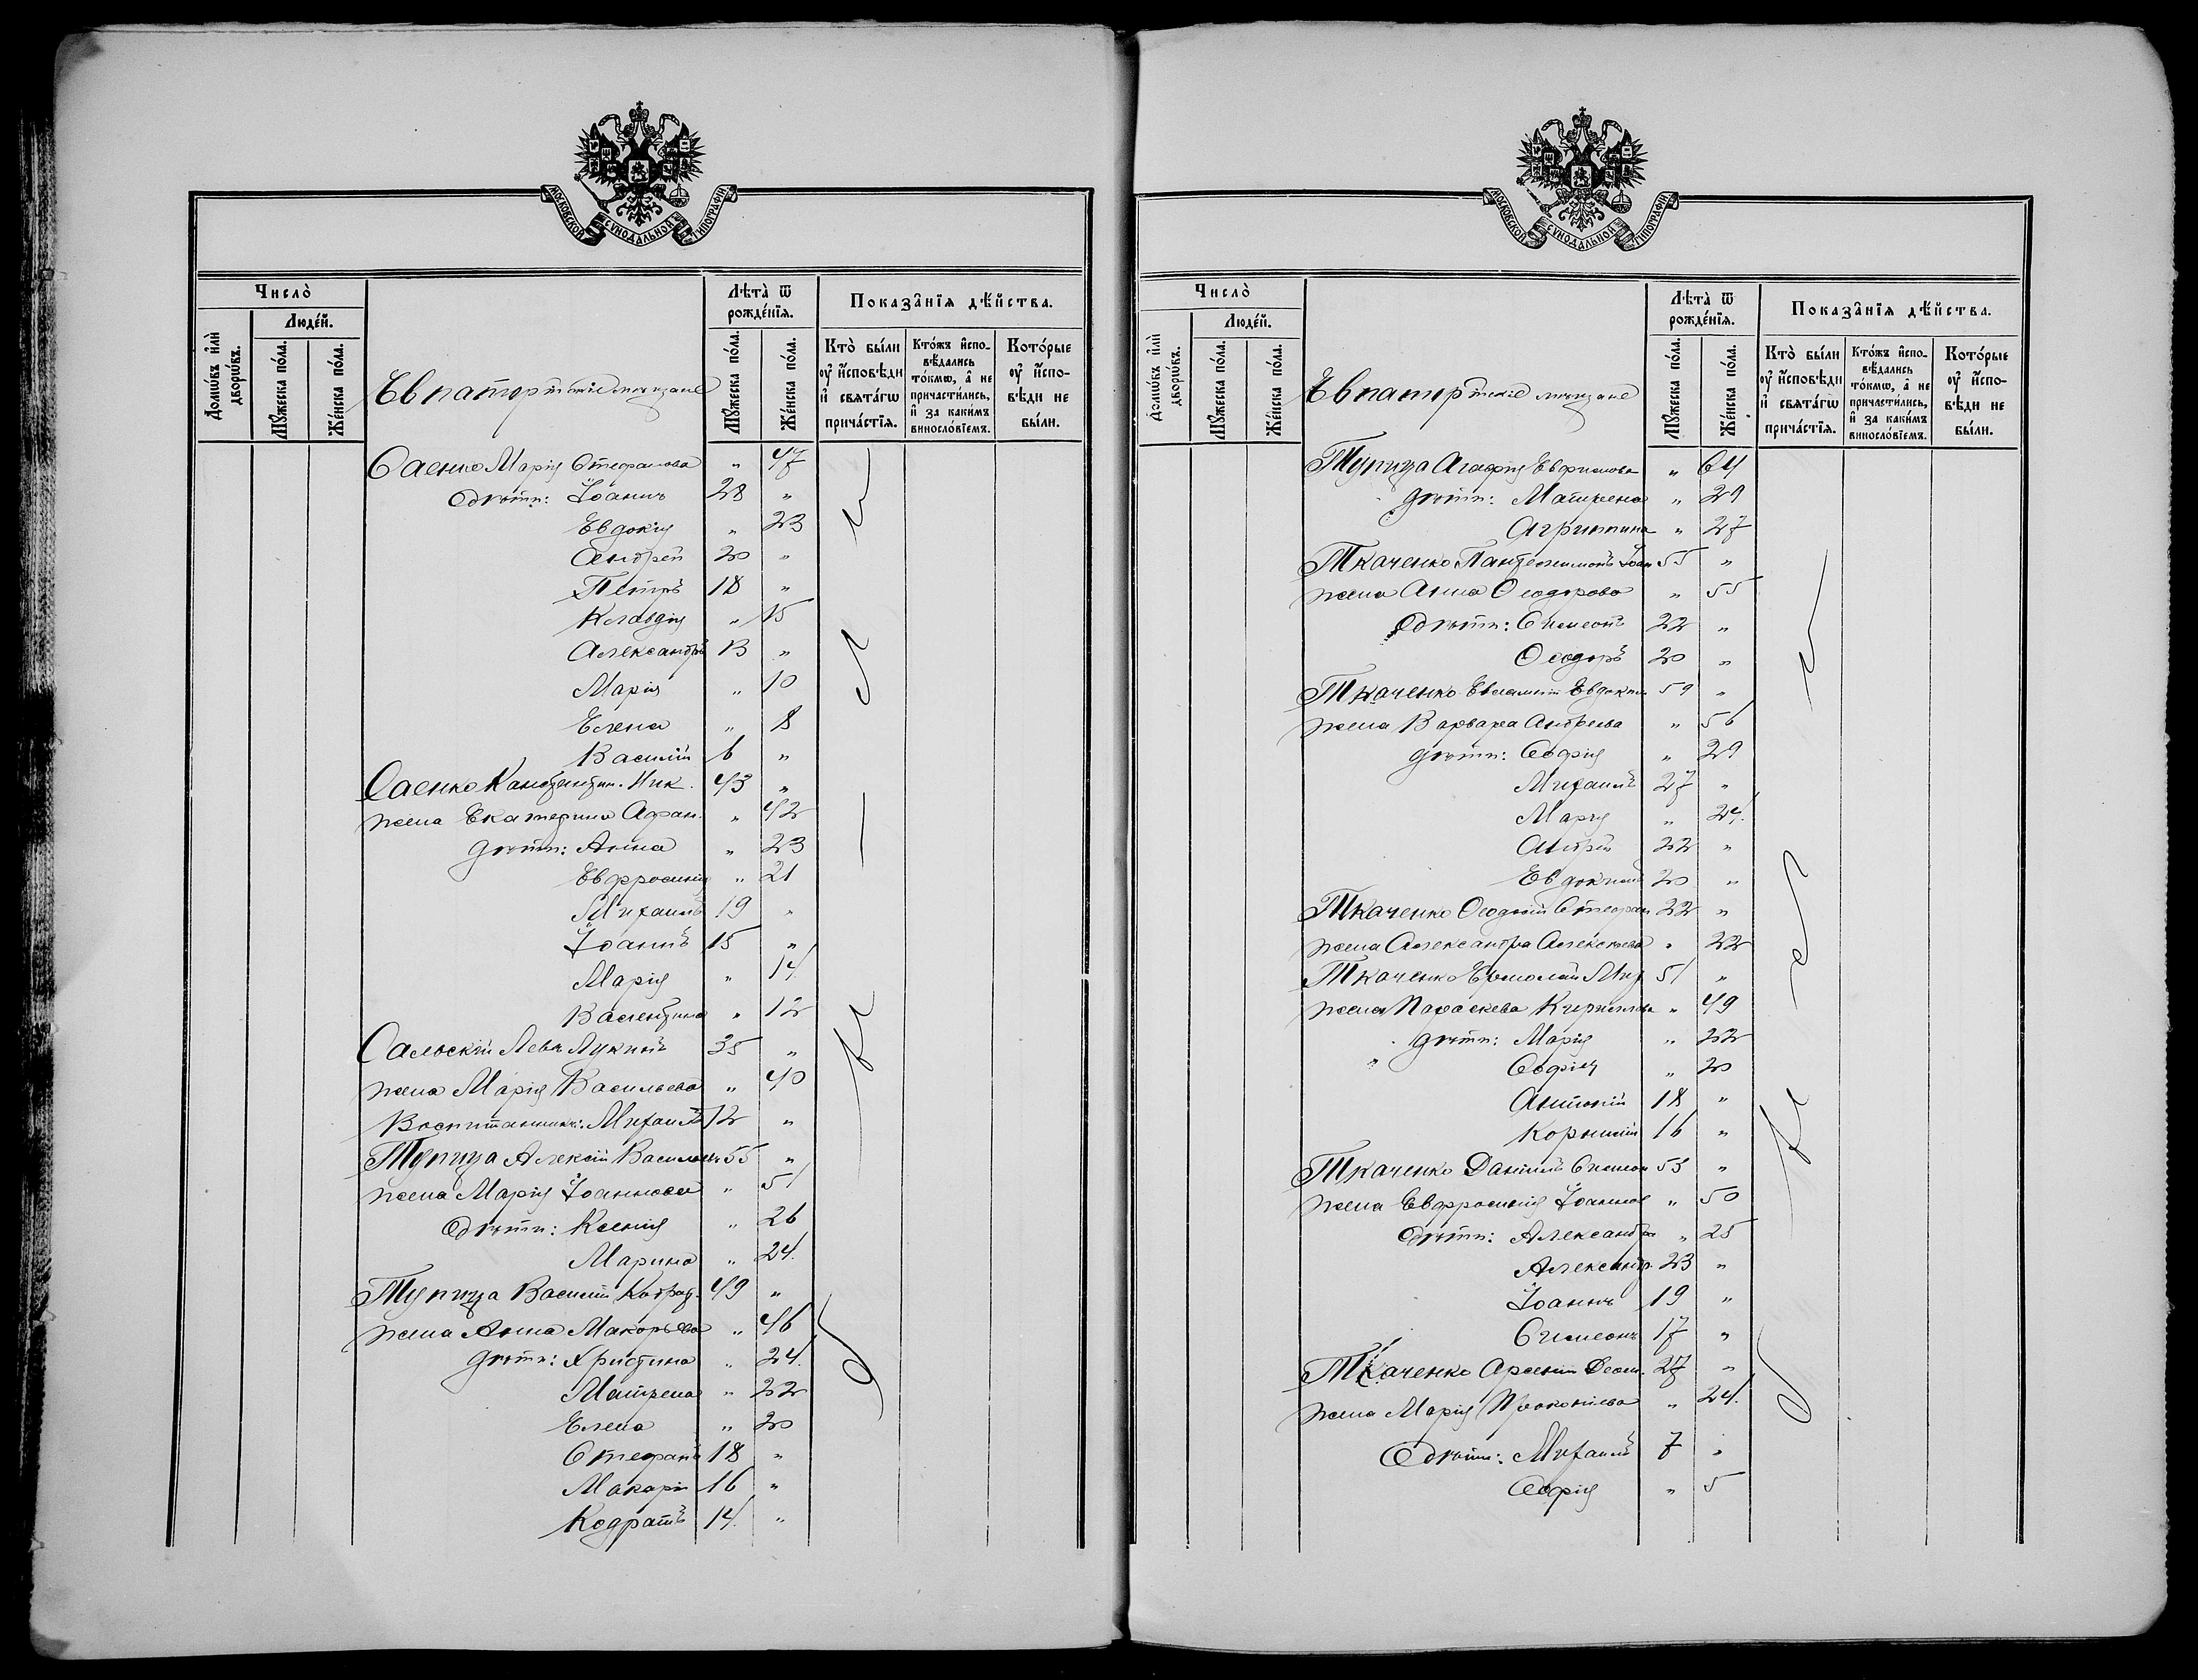 МОСКОВСКОЙ СѴНОДАЛЬНОЙ ТИПОГРАФІИ
Число̀
Люде́й.
Домѡ́въ и҆лѝ дворѡ́въ.
Мꙋ́жеска по́ла.
Же́нска по́ла.
Евпаторійскіе мѣщане
Лѣ́та ѿ рожде́нїѧ.
Мꙋ́жеска по́ла.
Же́нска по́ла.
Показа̑нїѧ дѣ́йства.
Кто̀ бы́ли ᲂу҆ и҆́сповѣди и҆ свѧта́гѡ прича́стїѧ.
Кто́жъ и҆сповѣ́дались то́кмѡ, а҆ не причасти́лись, и҆ за каки́мъ винослові́емъ.
Кото́рые ᲂу҆ и҆́сповѣди не бы́ли.
Саенко Марія Стефанова " 47
дѣти: Іоаннъ 28 "
Евдокія " 23
Андрей 20 "
Петръ 18 "
Клавдія " 15
Александръ 13 "
Марія " 10
Елена " 8
Василій 6 "
Саенко Константин. Ник. 43 "
жена Екатерина Афан. " 42
дѣти: Анна " 23
Евфросинія " 21
Михаилъ 19 "
Іоаннъ 15 "
Марія " 14.
Валентина " 12
Сальскій Левъ Лукинъ 35 "
жена Марія Васильева " 40
Воспитанникъ: Михаилъ 12 "
Тупица Алексій Васильевъ 55 "
жена Марія Іоаннова " 51
дѣти: Ксенія " 26
Марина " 24.
Тупица Василій Кодрат. 49 "
жена Анна Макарьева " 46
дѣти: Христина " 24.
Матрена " 22
Елена " 20
Стефанъ 18 "
Макарій 16 "
Кодратъ 14. "
МОСКОВСКОЙ СѴНОДАЛЬНОЙ ТИПОГРАФІИ
Число̀
Люде́й.
Домѡ́въ и҆лѝ дворѡ́въ.
Мꙋ́жеска по́ла.
Же́нска по́ла.
Евпаторійскіе мѣщане
Лѣ́та ѿ рожде́нїѧ.
Мꙋ́жеска по́ла.
Же́нска по́ла.
Показа̑нїѧ дѣ́йства.
Кто̀ бы́ли ᲂу҆ и҆́сповѣди и҆ свѧта́гѡ прича́стїѧ.
Кто́жъ и҆сповѣ́дались то́кмѡ, а҆ не причасти́лись, и҆ за каки́мъ винослові́емъ.
Кото́рые ᲂу҆ и҆́сповѣди не бы́ли.
Тупица Агафія Евфимова " 64
дѣти: Матрена " 29
Агриппина " 27
Ткаченко Пантелеимонъ Іоан 55 "
жена Анна Ѳеодорова " 55
дѣти: Симеонъ 22 "
Ѳеодоръ 20 "
Ткаченко Евлампій Евдоким 59 "
жена Варвара Андреева " 56
дѣти: Софія " 29
Михаилъ 27 "
Марія " 24.
Андрей 22 "
Евдокимъ 20 "
Ткаченко Ѳеодосій Стефан 22 "
жена Александра Алексѣева " 22
Ткаченко Ермолай Мих 51 "
жена Параскева Кириллова " 49
дѣти: Марія " 22
Софія " 20
Антоній 18 "
Корнилій 16 "
Ткаченко Даніилъ Симеон 53 "
жена Евфросинія Іоаннов " 50
дѣти: Александра " 25
Александръ 23 "
Іоаннъ 19 "
Симеонъ 17 "
Ткаченко Арсеній Леон. 27 "
жена Марія Прокопіева " 24.
дѣти: Михаилъ 7 "
Софія " 5